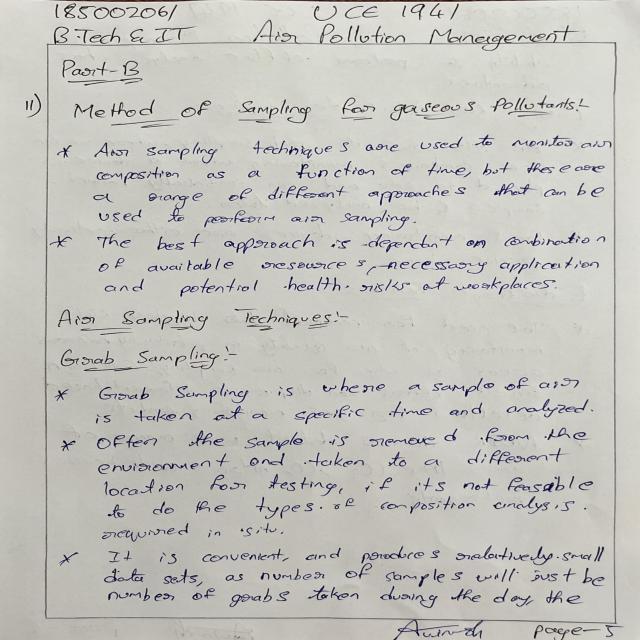 18500206/ UCE 1941
B.Tech & IT Air Pollution Management
Part-B
11) Method of Sampling for gaseous Pollutants:-
* Air sampling techniques are used to monitor air
composition as a function of time, but there are
a range of different approaches that can be
used to perform air sampling.
* The best approach is dependent on combination
of available resources, necessary application
and potential health risks at workplaces.
Air Sampling Techniques:-
Grab Sampling:-
* Grab Sampling is where a sample of air
is taken at a specific time and analyzed.
* Often the sample is removed from the
environment and taken to a different
location for testing, if it's not feasable
to do the types of composition analysis.
required in situ.
* It is convenient, and produces relatively small
data sets, as number of samples will just be
number of grabs taken during the day, the
page-5